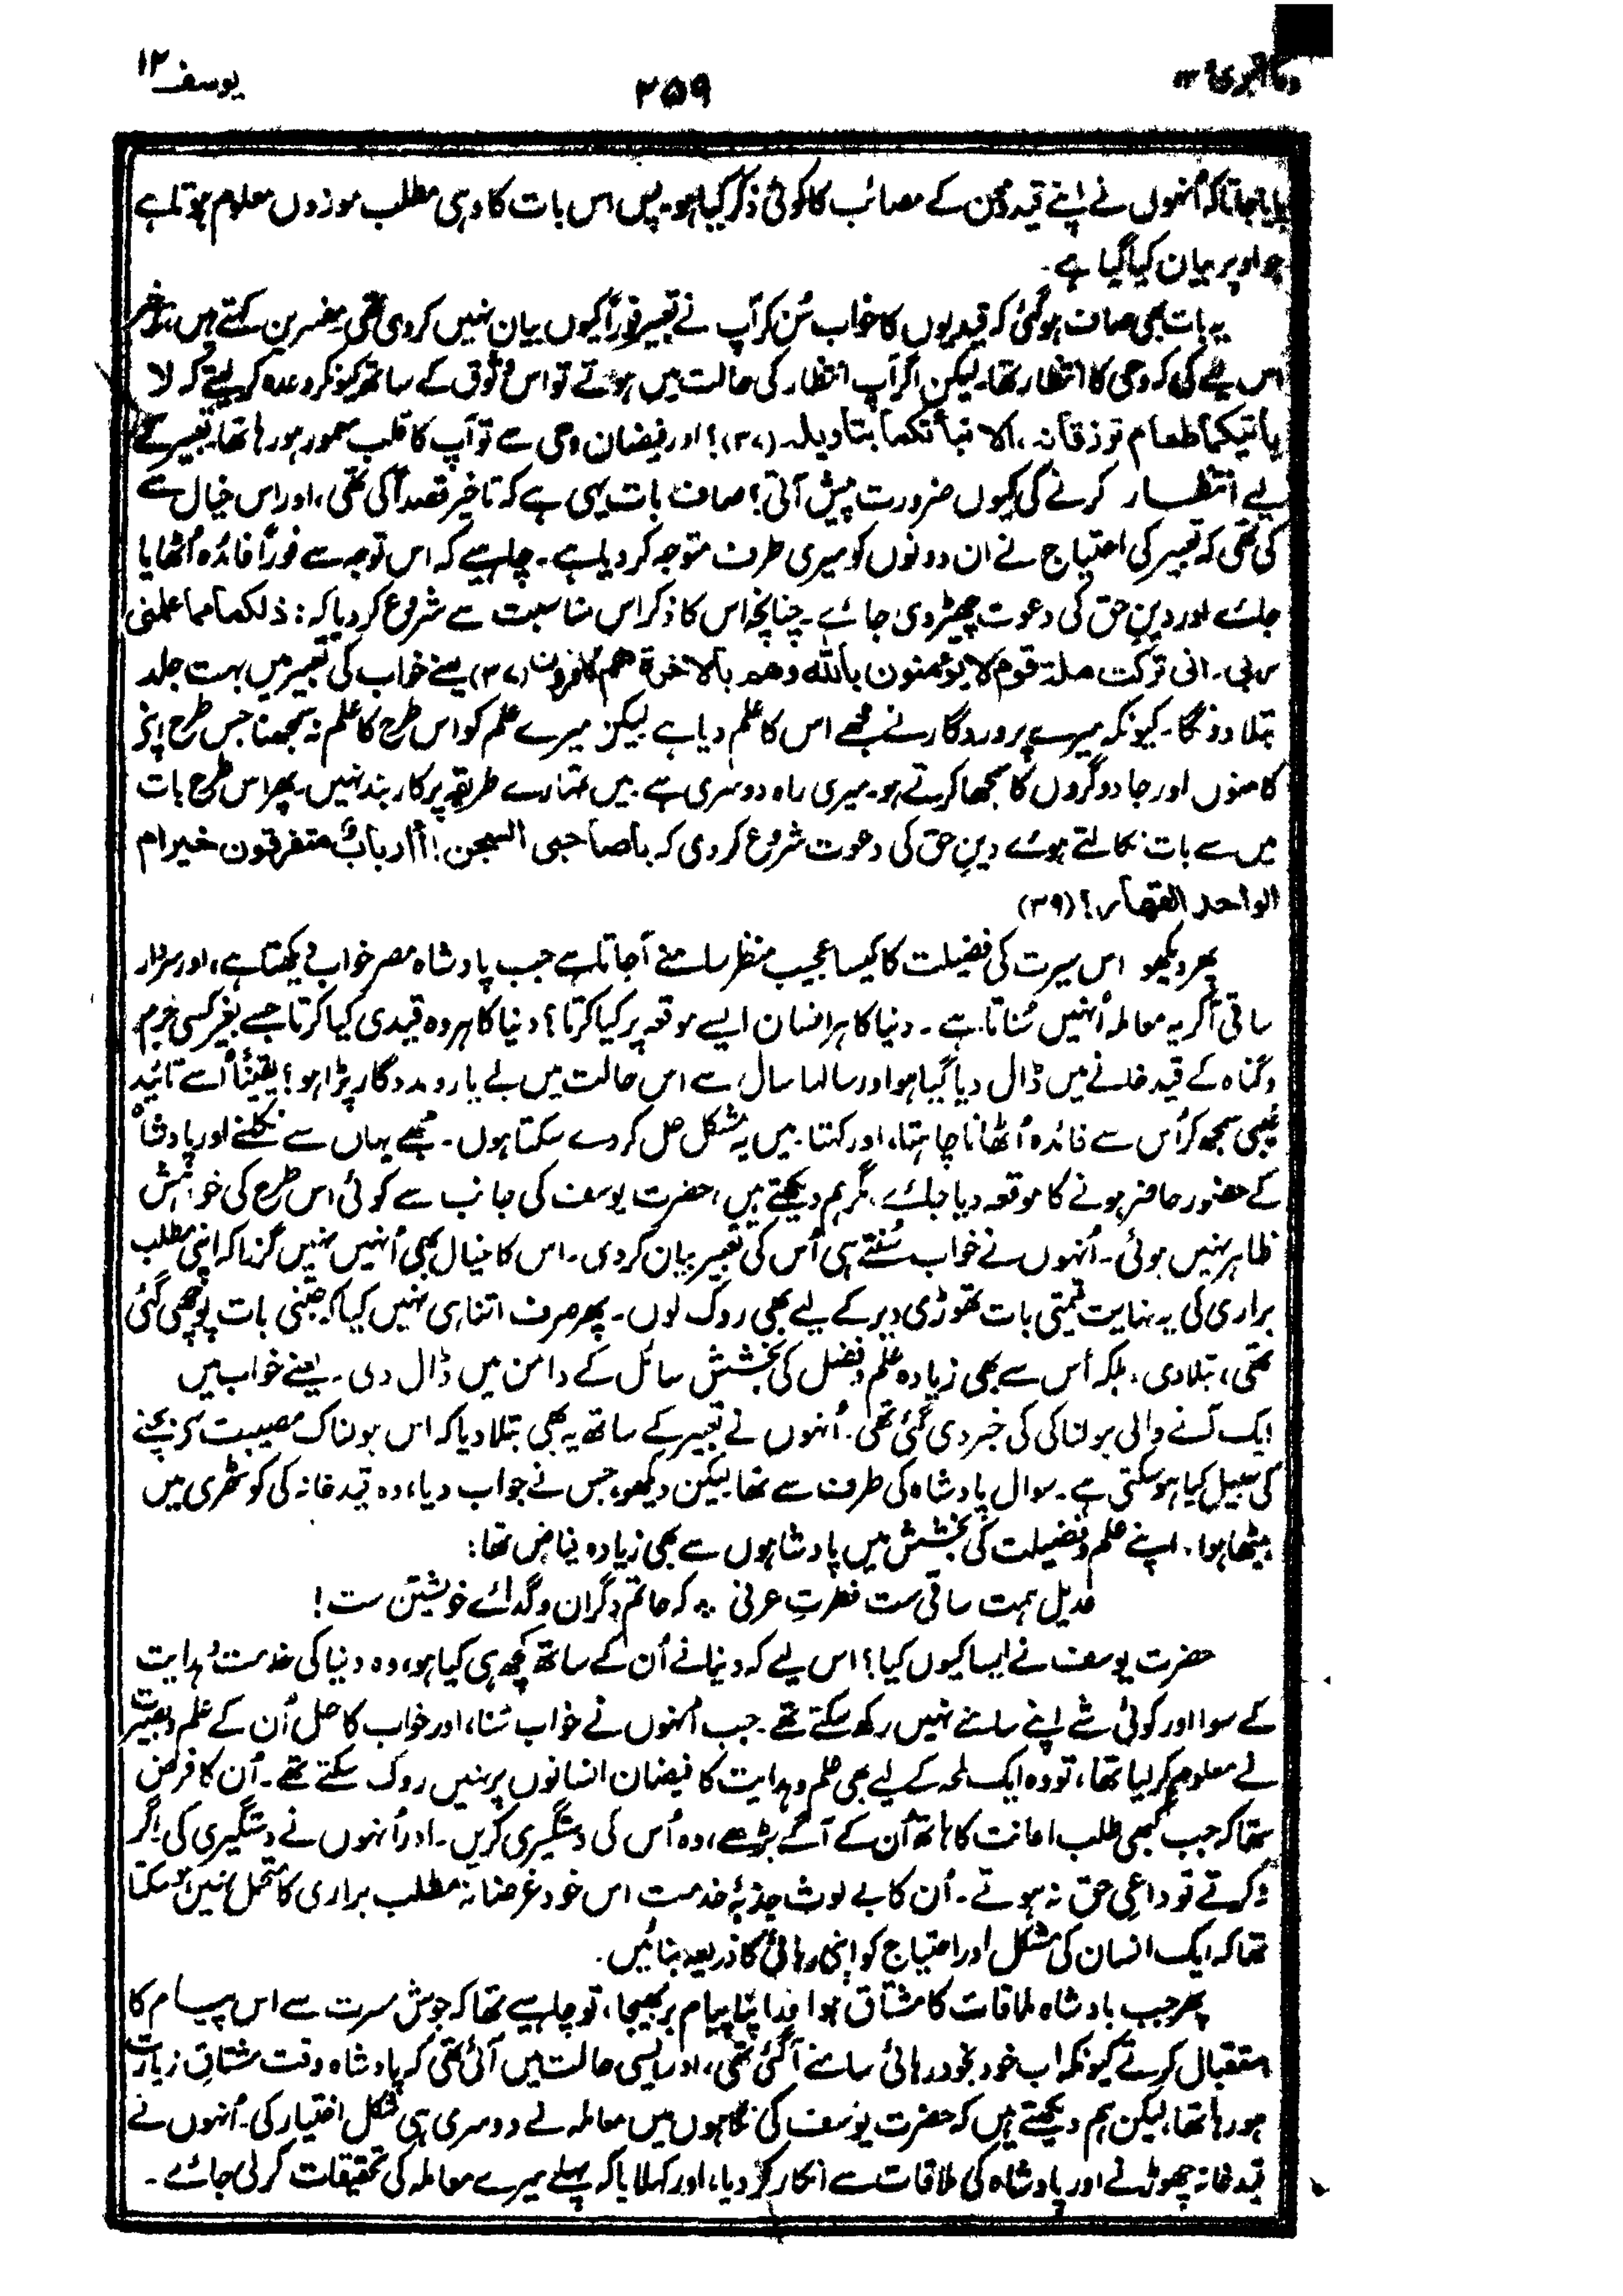 وما ابری ۱۳ ۲۵۹ یوسف ۱۲
پایا جاتا کہ اُنہوں نے اپنے قید و محن کے مصائب کا کوئی ذکر کیا ہو۔ پس اس بات کا وہی مطلب موزوں معلوم ہوتا ہے
جو اوپر بیان کیا گیا ہے۔
یہ بات بھی صاف ہوگئی کہ قیدیوں کا خواب سُن کر آپ نے تعبیر فوراً کیوں بیان نہیں کر دی تھی۔ مفسرین کہتے ہیں، تاخیر
اس لیے کی کہ وحی کا انتظار تھا۔ لیکن اگر آپ انتظار کی حالت میں ہوتے تو اس وثوق کے ساتھ کیونکر وعدہ کر لیتے کہ لا
یأتیکما طعام ترزقانہ، الا نبأتکما بتاویلہ (۳۷)؟ اور فیضان وحی سے تو آپ کا قلب معمور ہو رہا تھا۔ تعبیر کے
لیے انتظار کرنے کی کیوں ضرورت پیش آتی؟ صاف بات یہی ہے کہ تاخیر قصداً کی تھی، اور اس خیال سے
کی تھی کہ تعبیر کی احتیاج نے ان دونوں کو میری طرف متوجہ کر دیا ہے۔ چاہیے کہ اس توجہ سے فوراً فائدہ اُٹھایا
جائے اور دینِ حق کی دعوت چھیڑ دی جائے۔ چنانچہ اس کا ذکر اس مناسبت سے شروع کر دیا کہ: ذلکما مما علمنی
ربی۔ انی ترکت ملۃ قوم لا یؤمنون باللہ وھم بالاخرۃ ھم کافرون (۳۷) یعنے خواب کی تعبیر میں بہت جلد
بتلا دونگا۔ کیونکہ میرے پروردگار نے مجھے اس کا علم دیا ہے لیکن میرے علم کو اس طرح کا علم نہ سمجھنا جس طرح اپنے
کاہنوں اور جادوگروں کا سمجھا کرتے ہو۔ میری راہ دوسری ہے۔ میں تمہارے طریقہ پر کاربند نہیں۔ پھر اس طرح بات
میں سے بات نکالتے ہوئے دینِ حق کی دعوت شروع کر دی کہ یا صاحبی السجن! أأرباب متفرقون خیر ام
الواحد القھار؟ (۳۹)
پھر دیکھو اس سیرت کی فضیلت کا کیسا عجیب منظر سامنے آ جاتا ہے جب پادشاہ مصر خواب دیکھتا ہے، اور سردار
ساقی آ کر یہ معاملہ اُنہیں سُناتا ہے۔ دنیا کا ہر انسان ایسے موقعہ پر کیا کرتا؟ دنیا کا ہر وہ قیدی کیا کرتا جسے بغیر کسی جرم
و گناہ کے قید خانے میں ڈال دیا گیا ہو اور سالہا سال سے اس حالت میں بے یار و مددگار پڑا ہو؟ یقیناً اُسے تائید
غیبی سمجھ کر اُس سے فائدہ اُٹھانا چاہتا، اور کہتا۔ میں یہ مشکل حل کر دے سکتا ہوں۔ مجھے یہاں سے نکلنے اور پادشاہ
کے حضور حاضر ہونے کا موقعہ دیا جائے۔ مگر ہم دیکھتے ہیں، حضرت یوسف کی جانب سے کوئی اس طرح کی خواہش
ظاہر نہیں ہوئی۔ اُنہوں نے خواب سُنتے ہی اُس کی تعبیر بیان کر دی۔ اس کا خیال بھی اُنہیں نہیں گزرا کہ اپنی مطلب
براری کی یہ نہایت قیمتی بات تھوڑی دیر کے لیے بھی روک لوں۔ پھر صرف اتنا ہی نہیں کیا کہ جتنی بات پوچھی گئی
تھی، بتلا دی، بلکہ اُس سے بھی زیادہ علم و فضل کی بخشش سائل کے دامن میں ڈال دی۔ یعنے خواب میں
ایک آنے والی ہولناکی کی خبر دی گئی تھی۔ اُنہوں نے تعبیر کے ساتھ یہ بھی بتلا دیا کہ اس ہولناک مصیبت سے بچنے
کی سبیل کیا ہو سکتی ہے۔ سوال پادشاہ کی طرف سے تھا لیکن دیکھو، جس نے جواب دیا، وہ قید خانہ کی کوٹھری میں
بیٹھا ہوا، اپنے علم و فضیلت کی بخشش میں پادشاہوں سے بھی زیادہ فیاض تھا:
عدیل ہمت ساقی ست فطرتِ عرفی ؞ کہ حاتم دگران و گدائے خویشتن ست!
حضرت یوسف نے ایسا کیوں کیا؟ اس لیے کہ دنیا نے اُن کے ساتھ کچھ ہی کیا ہو، وہ دنیا کی خدمت و ہدایت
کے سوا اور کوئی شے اپنے سامنے نہیں رکھ سکتے تھے۔ جب اُنہوں نے خواب سُنا، اور خواب کا حل اُن کے علم و بصیرت
نے معلوم کر لیا تھا، تو وہ ایک لمحہ کے لیے بھی علم و ہدایت کا فیضان انسانوں پر نہیں روک سکتے تھے۔ اُن کا فرض
تھا کہ جب کبھی طلب اعانت کا ہاتھ اُن کے آگے بڑھے، وہ اُس کی دستگیری کریں۔ اور اُنہوں نے دستگیری کی۔ اگر
نہ کرتے تو داعیِ حق نہ ہوتے۔ اُن کا بے لوث جذبۂ خدمت اس خود غرضانہ مطلب براری کا متحمل نہیں ہو سکتا
تھا کہ ایک انسان کی مشکل اور احتیاج کو اپنی رہائی کا ذریعہ بنائیں۔
پھر جب بادشاہ ملاقات کا مشتاق ہوا اور اپنا پیام بر بھیجا، تو چاہیے تھا کہ جوش مسرت سے اس پیام کا
استقبال کرتے کیونکہ اب خود بخود رہائی سامنے آ گئی تھی، اور ایسی حالت میں آئی تھی کہ پادشاہ وقت مشتاقِ زیارت
ہو رہا تھا، لیکن ہم دیکھتے ہیں کہ حضرت یوسف کی نگاہوں میں معاملہ نے دوسری ہی شکل اختیار کی۔ اُنہوں نے
قید خانہ چھوڑنے اور پادشاہ کی ملاقات سے انکار کر دیا، اور کہلایا کہ پہلے میرے معاملہ کی تحقیقات کر لی جائے۔